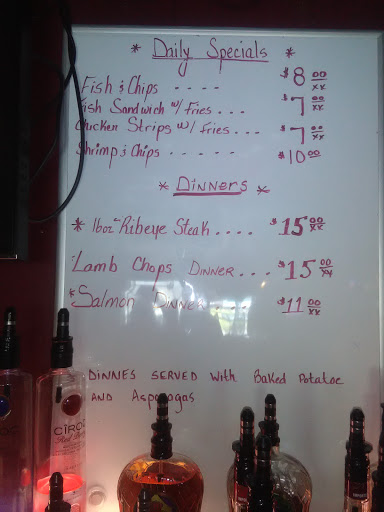 * Daily Specials *
Fish & Chips - - - - $8 00/xx
Fish Sandwich w/ Fries . . . $7 00/xx
Chicken Strips w/ Fries . . . $7 00/xx
Shrimp & Chips . - - - - - $10 00
* Dinners *
* 16oz Ribeye Steak . . . . $15 00/xx
* Lamb Chops Dinner . . . $15 00/xx
* Salmon Dinner . . $11 00/xx
DINNES SERVED With Baked Potatoe
AND Aspagagas
CÎROC
Red Berry